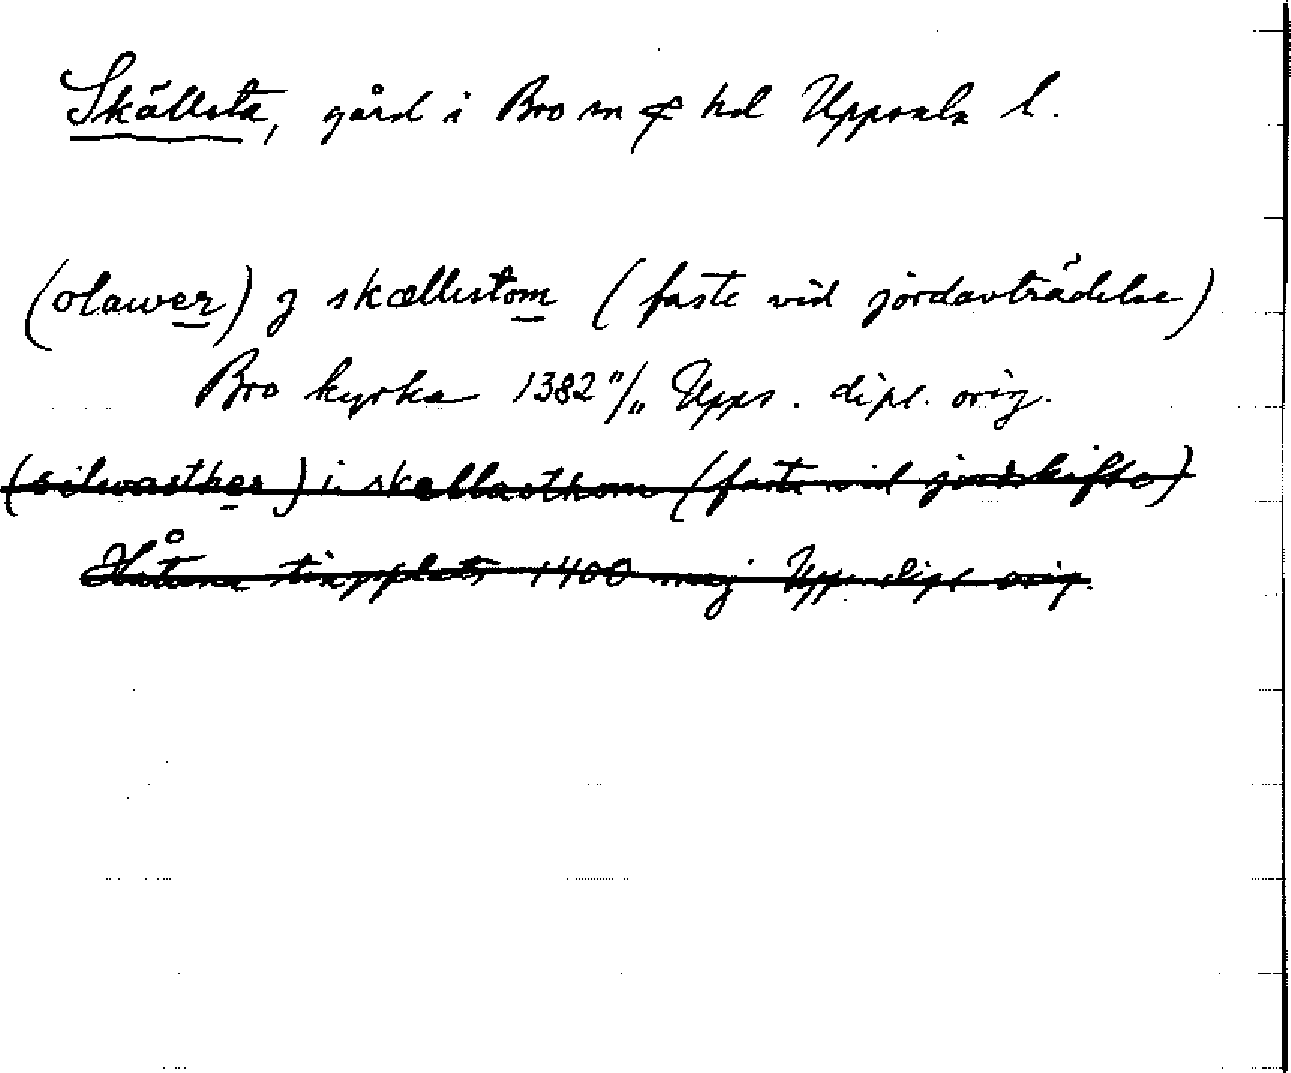 Skällsta, gård i Bro sn & hd Uppsala l.
(olawer) j skællistom (faste vid jordavträdelse)
Bro kyrka 1382 11/11 Upps. dipl. orig.
(silwasther) i skællasthom (faste vid jordskifte)
Håtuna tingplats 1400 maj Upps dipl orig.